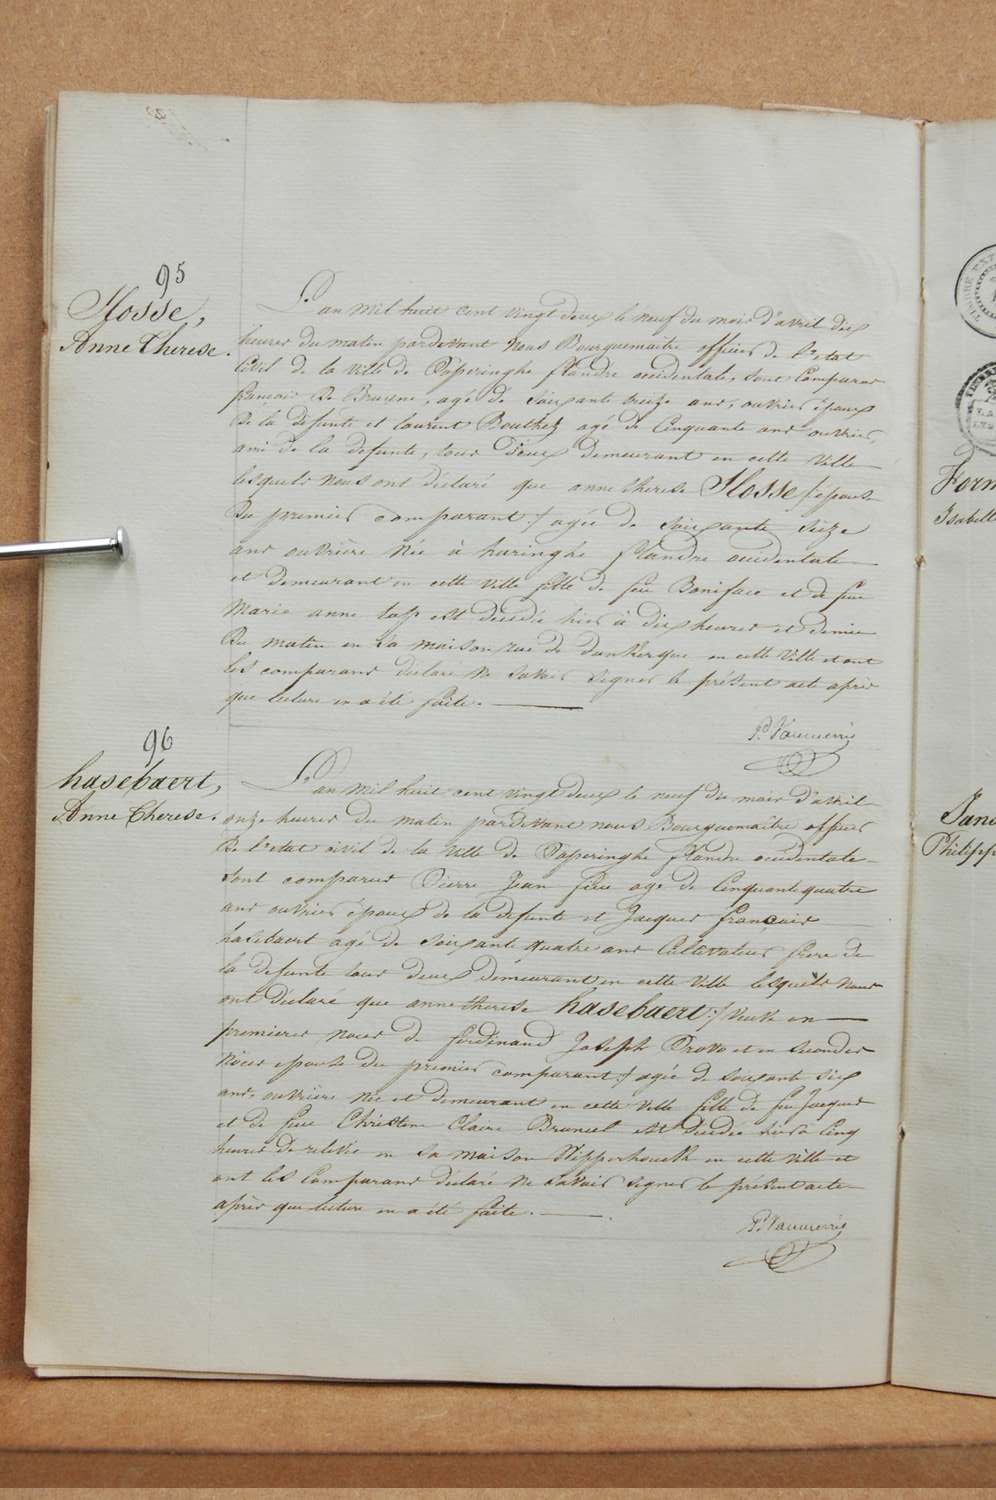 95
Flosse,
Anne Therese.
L'an mil huit cent vingt deux le neuf du mois d'avril dix
heures du matin pardevant nous Bourguemaitre officier de l'etat
Civil de la ville de Poperinghe flandre occidentale, sont Comparus
francois De Bruyne, agé de soixante treize ans, ouvrier époux
de la defunte et laurent Bouthez agé de Cinquante ans ouvrier,
ami de la defunte, tous deux demeurant en cette Ville
lesquels nous ont déclaré que anne therese Flosse /: epouse
du premier comparant :/ agée de soixante seize
ans ouvrière née à haringhe flandre occidentale
et demeurant en cette Ville fille de feu Boniface et de feue
Marie anne est decedée hier à dix heures et demie
du matin en sa maison rue de dunkerque en cette Ville et ont
les comparans déclaré ne savoir signer le présent acte après
que lecture en a été faite.
96
hasebaert,
Anne Therese.
L'an mil huit cent vingt deux le neuf du mois d'avril
onze heures du matin pardevant nous Bourguemaitre officier
de l'etat civil de la Ville de Poperinghe flandre occidentale
sont comparus Pierre Jean agé de Cinquante quatre
ans ouvrier époux de la defunte et Jacques francois
hasebaert agé de soixante quatre ans Cultivateur frere de
la defunte tous deux demeurant en cette Ville lesquels nous
ont déclaré que anne therese hasebaert :/ veuve en
premieres noces de ferdinand Joseph et en secondes
noces epouse du premier comparant :/ agée de soixante six
ans, ouvriere née et demeurant en cette Ville fille de feu Jacques
et de feue Christine Claire est decedée hier à Cinq
heures de relevée en sa maison en cette Ville et
ont les Comparans déclaré ne savoir signer le présent acte
après que lecture en a été faite.
Isabelle
Philippe